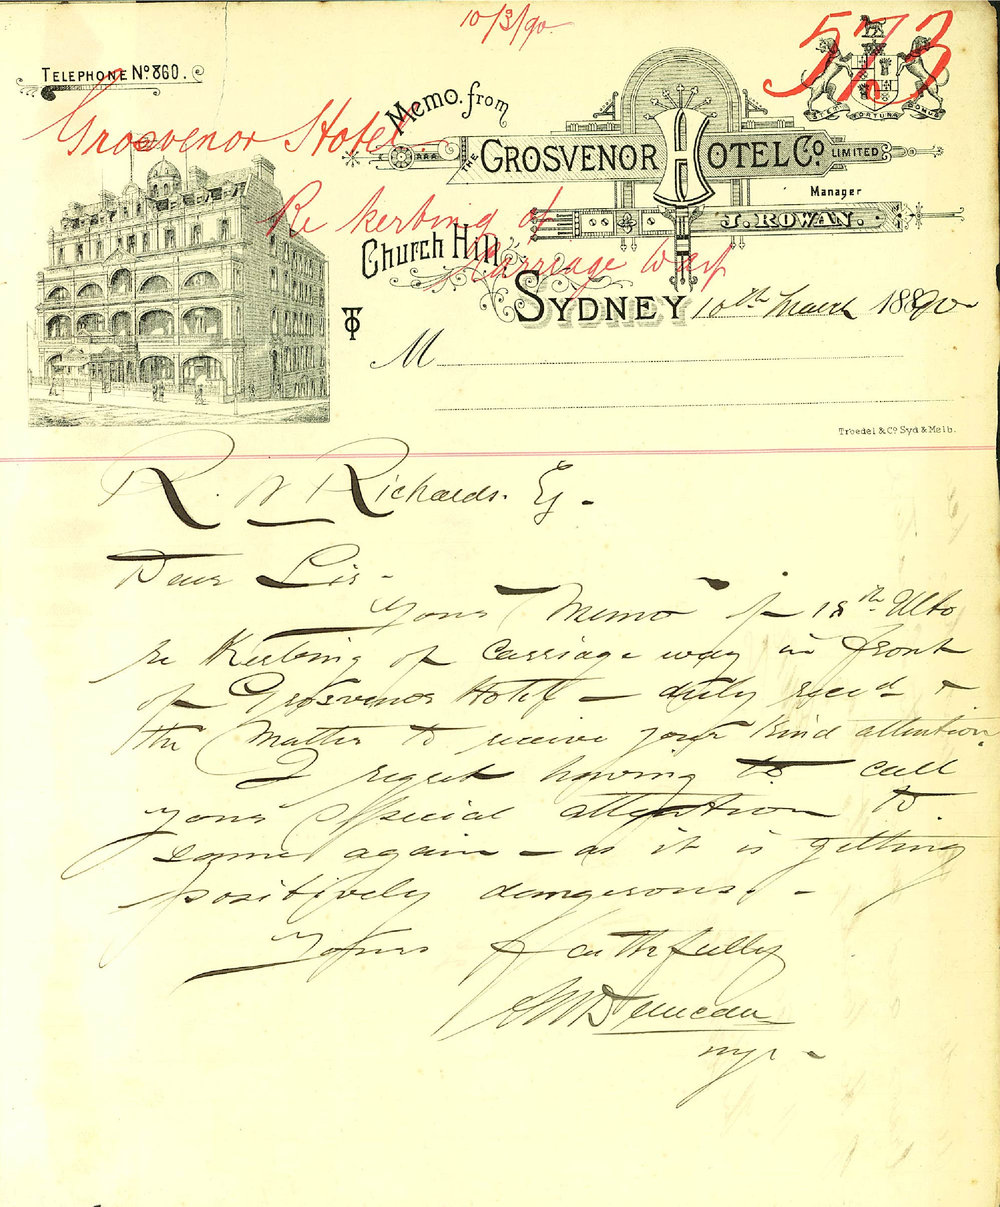 10/3/90
573
TELEPHONE Nº 860.
Grosvenor Hotel
Re kerbing of
Carriage Way
Memo. from
THE GROSVENOR HOTEL Cº LIMITED
STET FORTUNA DOMUS
Manager
J. ROWAN.
Church Hill
SYDNEY 10th March 1890
M
Troedel & Cº Syd & Melb.
R. N Richards. Esq -
Dear Sir -
Your Memo of 18th Ulto
re Kerbing of Carriage way in front
of Grosvenor Hotel - duly recd &
the Matter to receive your kind attention
I regret having to call
your special attention to
same again - as it is getting
positively dangerous. -
Yours faithfully
Duncan
mgr -